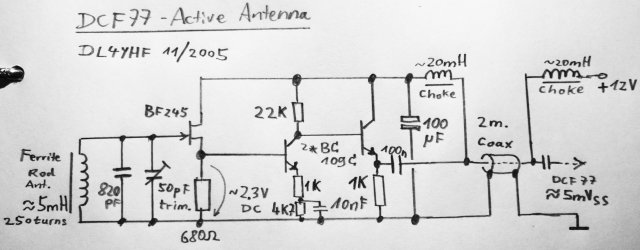 DCF77 - Active Antenna
DL4YHF 11/2005
~20mH
Choke
~20mH
Choke
+12V
BF245
22K
2*BC
109C
100
µF
2m.
Coax
100n
Ferrite
Rod
Ant.
≈5mH
250turns
820
PF
50pF
trim.
680Ω
~2.3V
DC
1K
4K7
10nF
1K
DCF77
≈5mVss